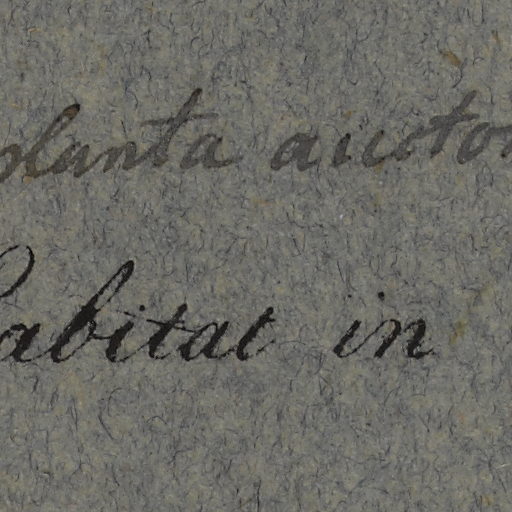 planta auctor
Habitat in